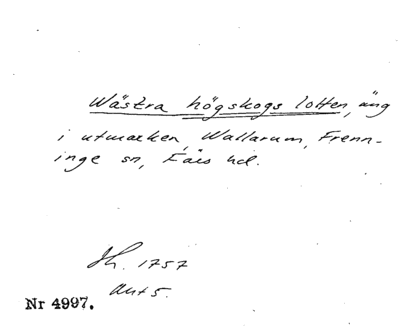 Wästra högskogs lotten, äng
i utmarken, Wallarum, Frenn-
inge sn, Färs hd.
Jh. 1757
Akt 5.
Nr 4997.